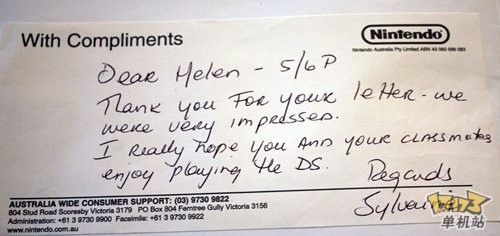 With Compliments
Nintendo
Nintendo Australia Pty Limited ABN 43 060 566 083
Dear Helen - 5/6P
Thank you For your letter - we
were very impressed.
I really hope you and your classmates
enjoy playing the DS.
Regards
AUSTRALIA WIDE CONSUMER SUPPORT: (03) 9730 9822
804 Stud Road Scoresby Victoria 3179 PO Box 804 Ferntree Gully Victoria 3156
Administration: +61 3 9730 9900 Facsimile: +61 3 9730 9922
www.nintendo.com.au
单机站